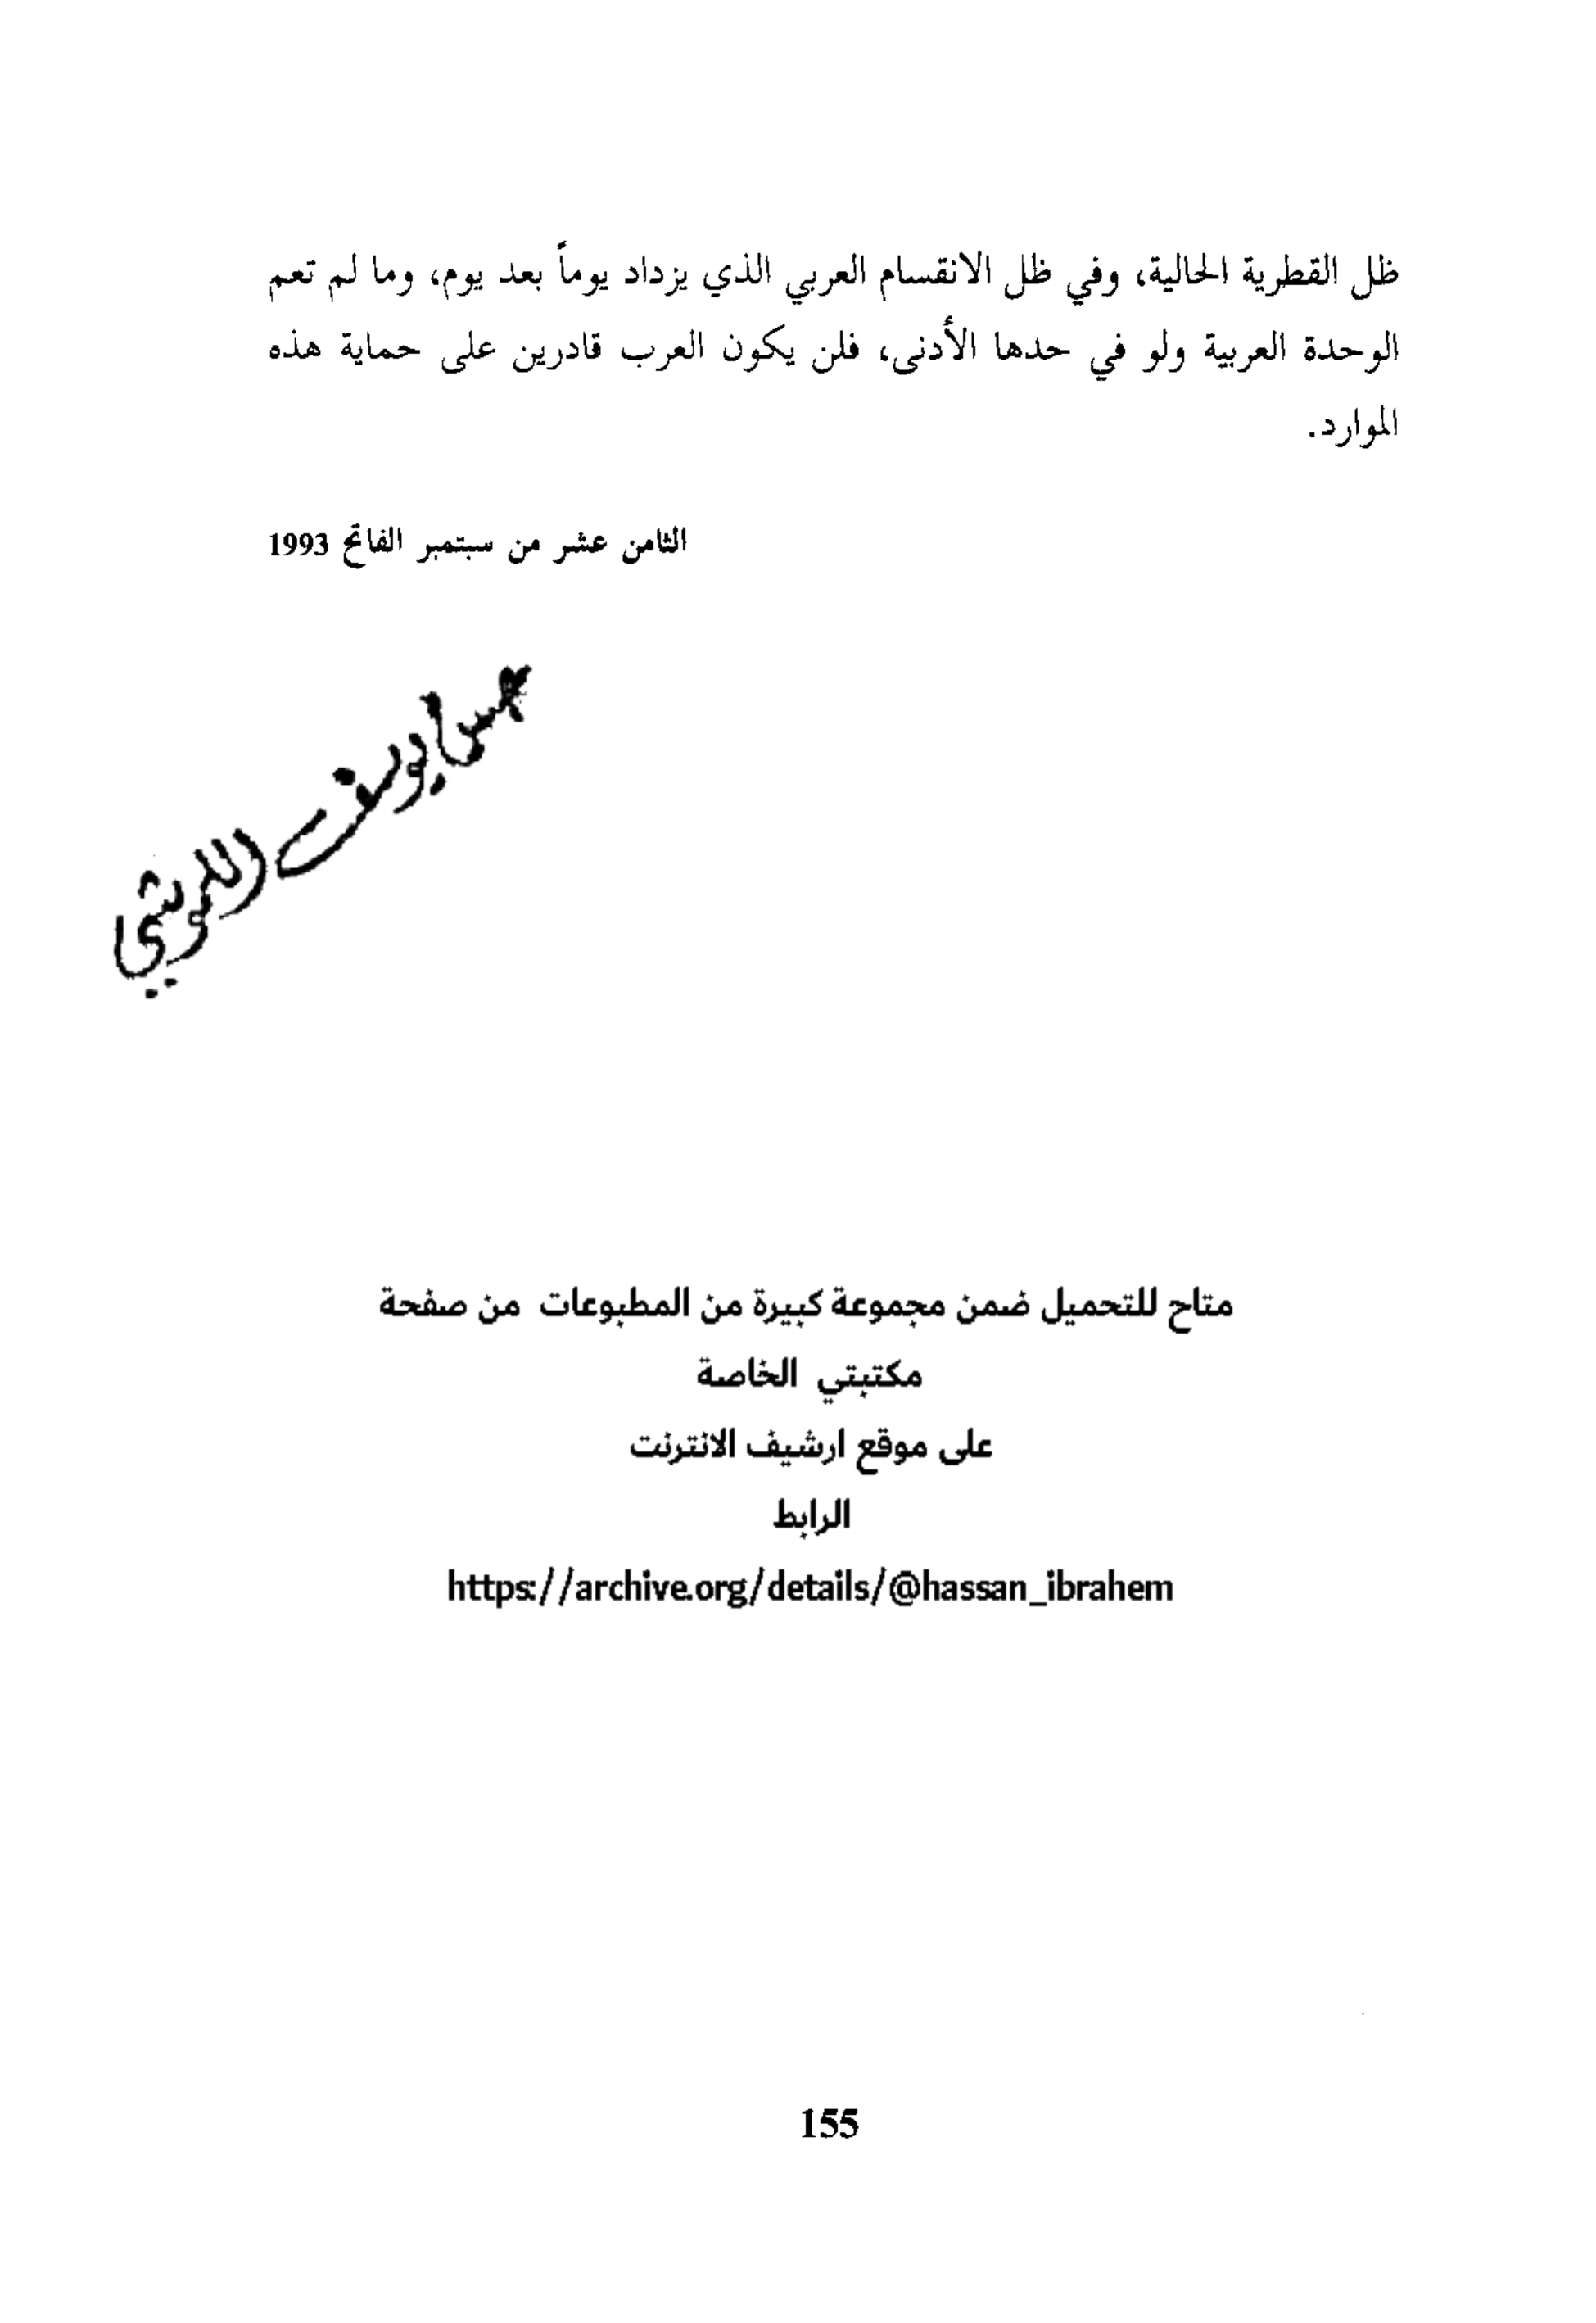 ظل القطرية الحالية، وفي ظل الانقسام العربي الذي يزداد يوماً بعد يوم، وما لم تعم
الوحدة العربية ولو في حدها الأدنى، فلن يكون العرب قادرين على حماية هذه
الموارد.
الثامن عشر من سبتمبر الفاتح 1993
يوسف
متاح للتحميل ضمن مجموعة كبيرة من المطبوعات من صفحة
مكتبتي الخاصة
على موقع ارشيف الانترنت
الرابط
https://archive.org/details/@hassan_ibrahem
155